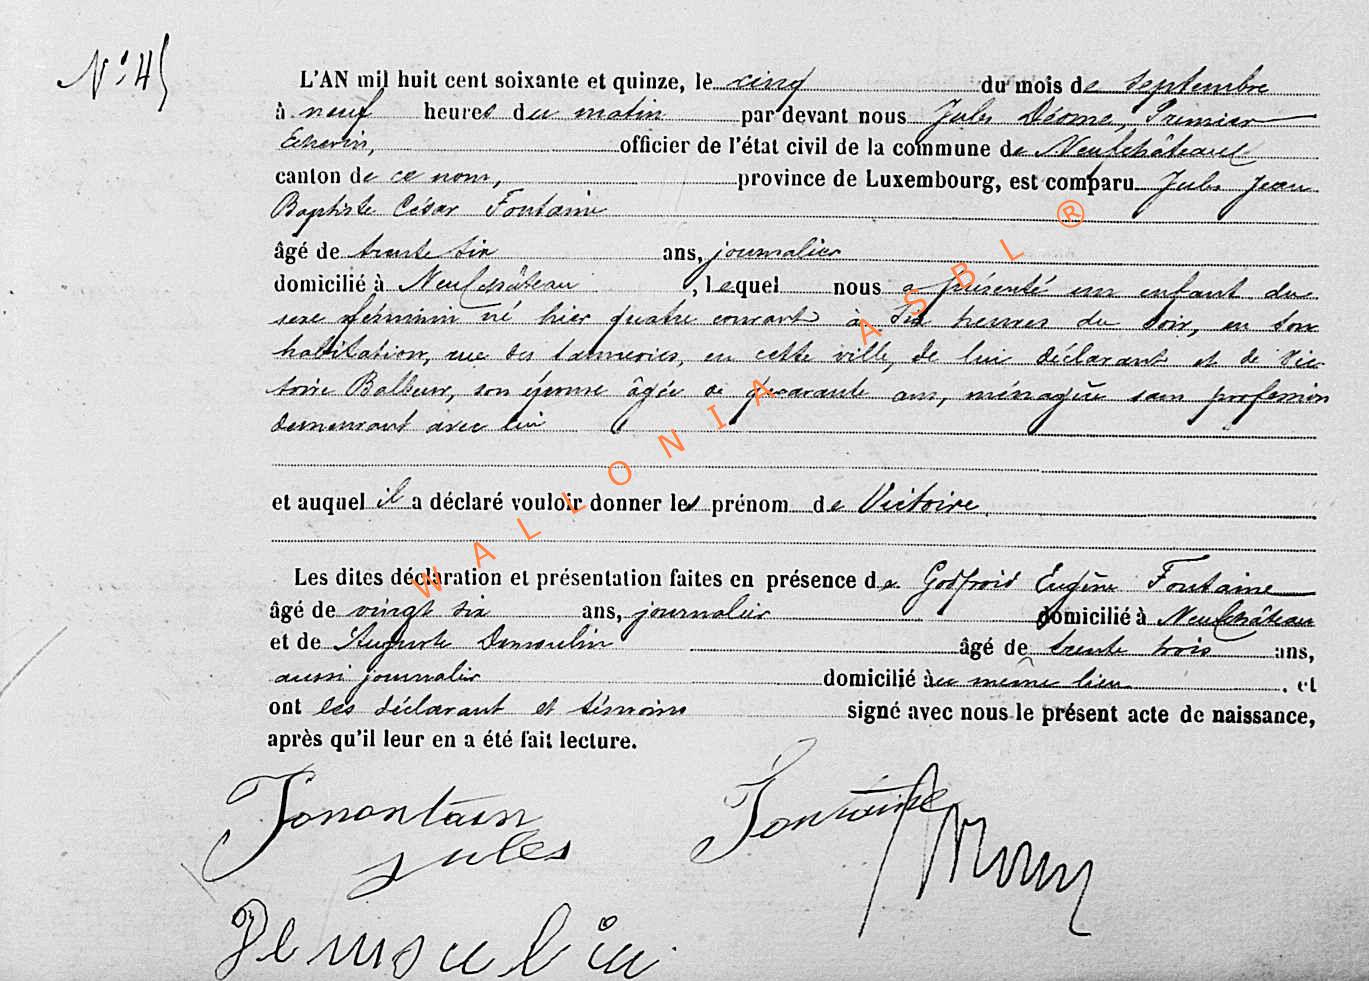 N° 45
L'AN mil huit cent soixante et quinze, le cinq du mois de Septembre
à neuf heures du matin par devant nous Jules Déome, Premier
Echevin, officier de l'état civil de la commune de Neufchâteau
canton de ce nom, province de Luxembourg, est comparu Jules Jean
Baptiste César Fontaine
âgé de trente six ans, journalier
domicilié à Neufchâteau, lequel nous a présenté un enfant du
sexe féminin né hier quatre courant à six heures du soir, en son
habitation, rue des tanneries, en cette ville, de lui déclarant et de Vic
toire Balleur, son épouse âgée de quarante ans, ménagère sans profession
demeurant avec lui
et auquel il a déclaré vouloir donner les prénom de Victoire.
Les dites déclaration et présentation faites en présence de Godfroid Eugène Fontaine
âgé de vingt six ans, journalier domicilié à Neufchâteau
et de Auguste Demoulin âgé de trente trois ans,
aussi journalier domicilié au même lieu. et
ont les déclarant et témoins signé avec nous le présent acte de naissance,
après qu'il leur en a été fait lecture.
Fontaine
jules
WALLONIA ASBL ®